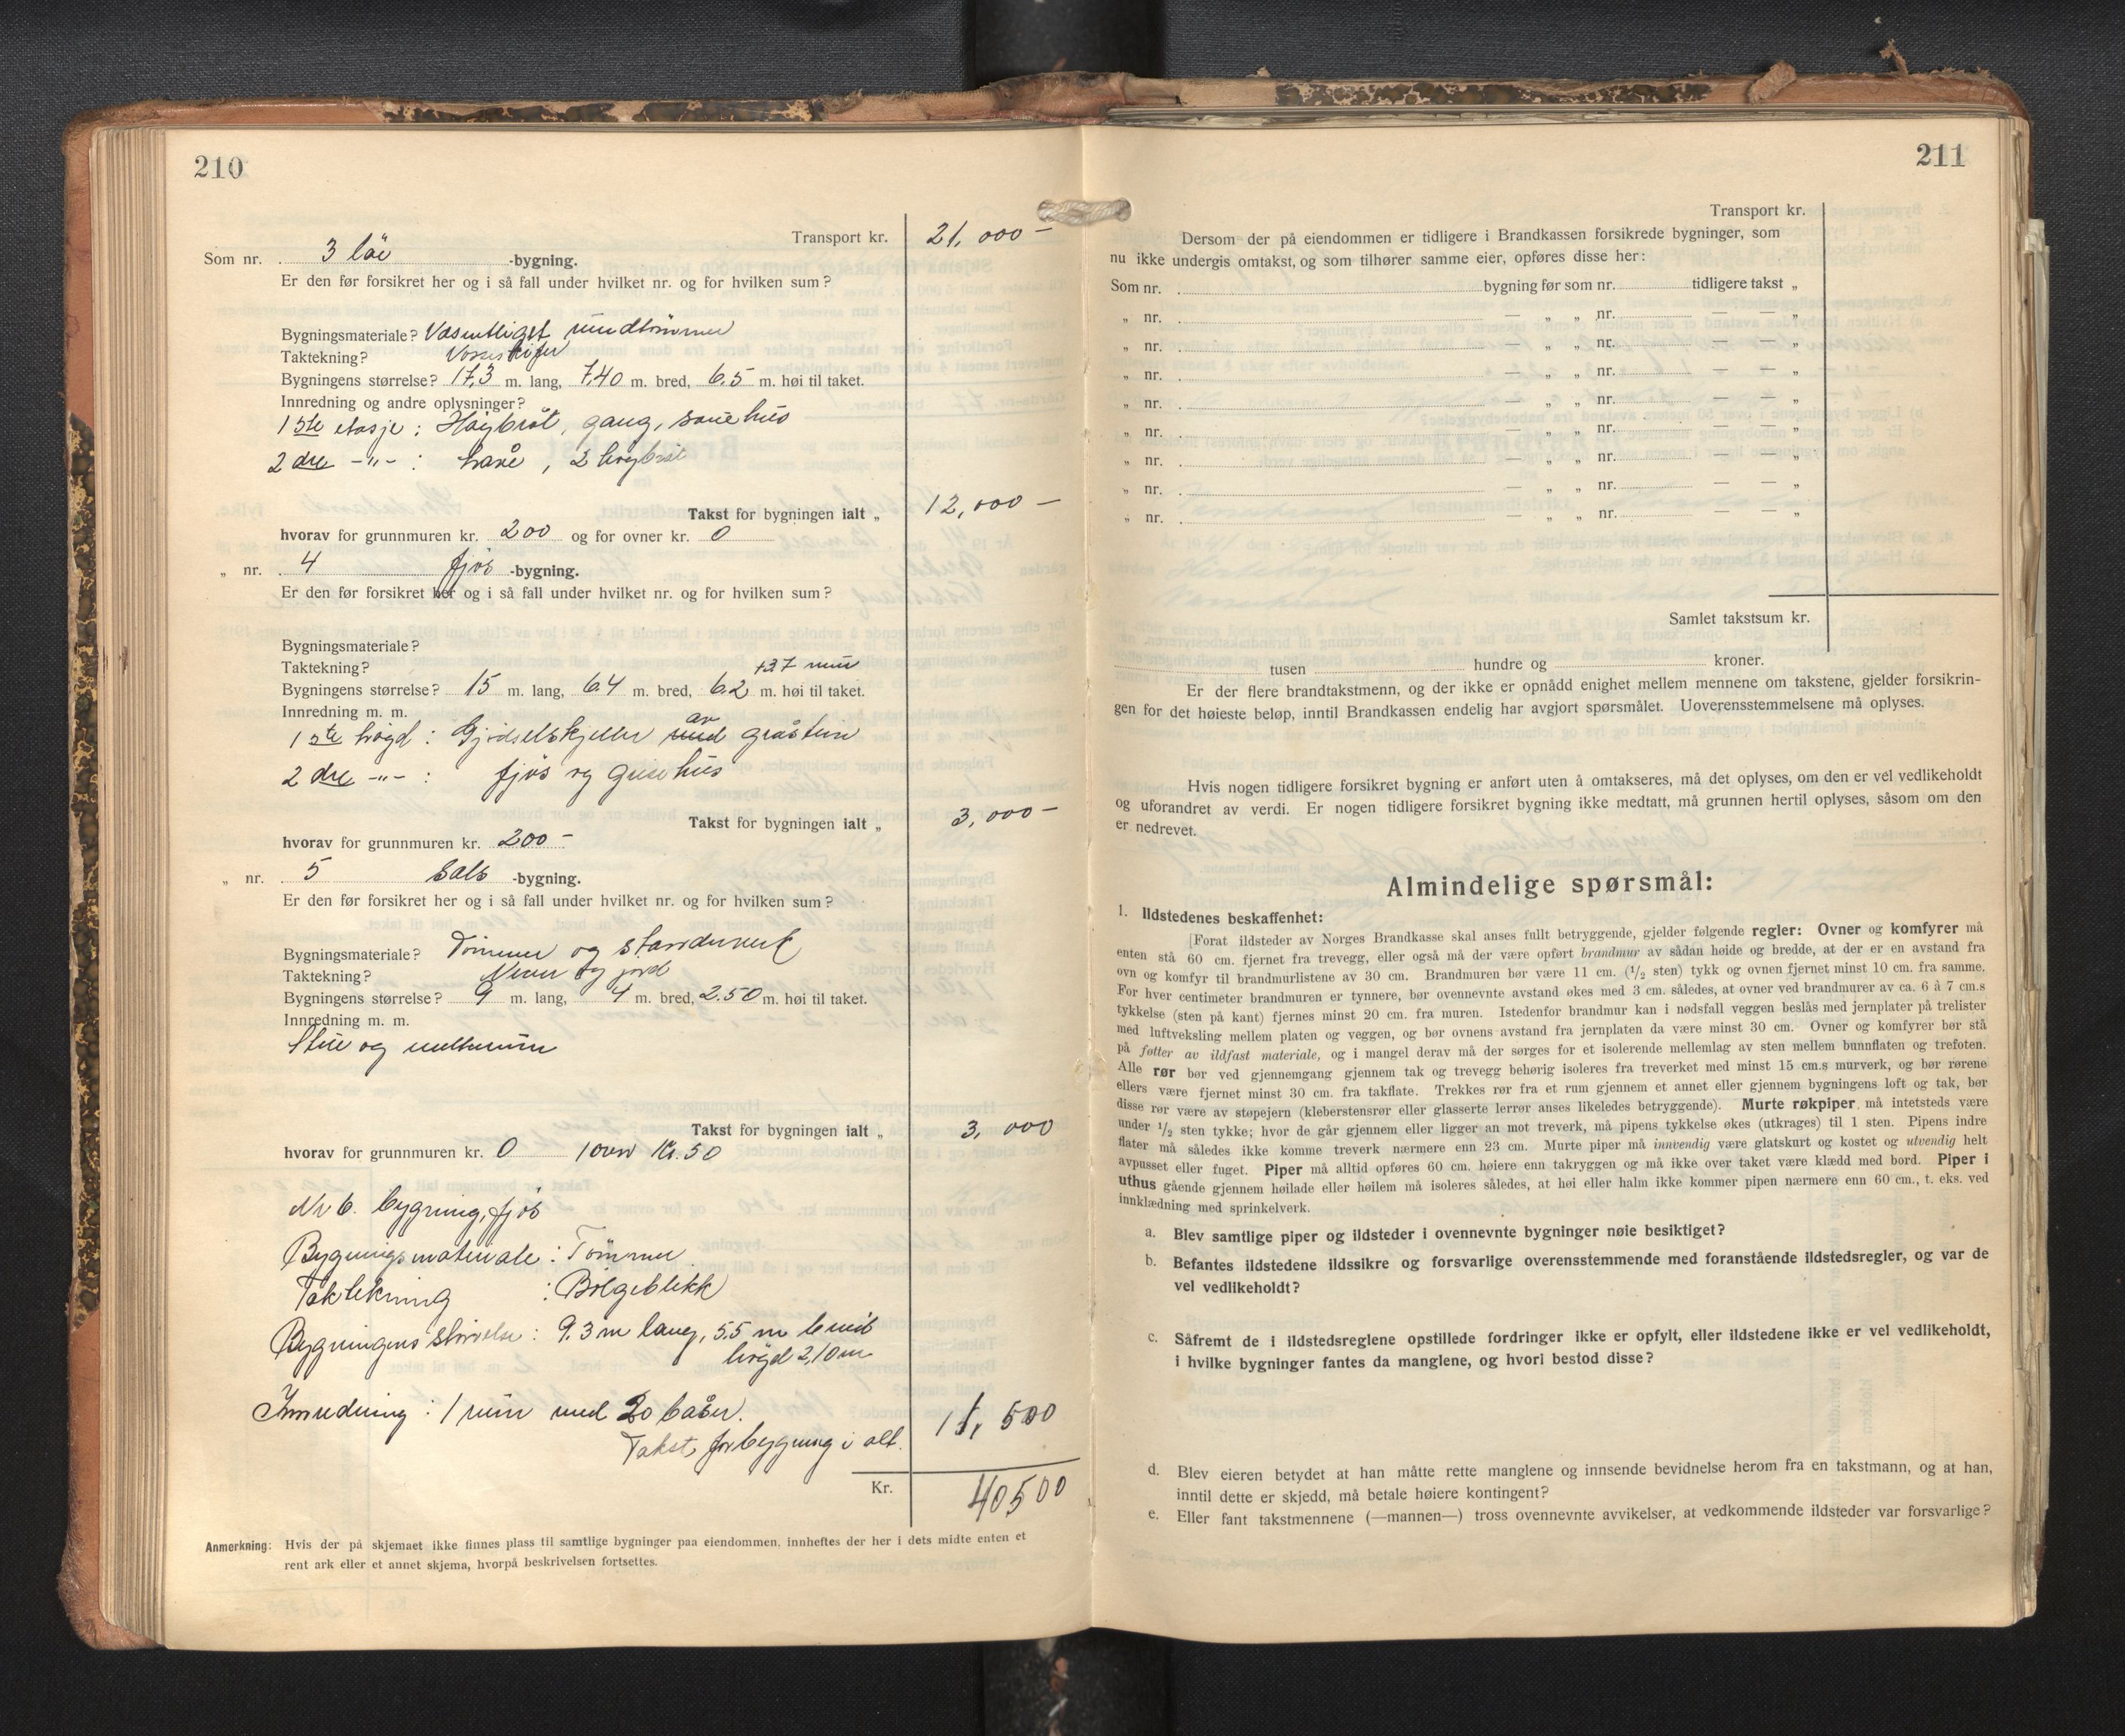 210
Transport kr. 21,000 —
Som nr. 3 löe -bygning.
Er den før forsikret her og i så fall under hvilket nr. og for hvilken sum?
Bygningsmateriale? Vasentligst rundtömmer
Taktekning? Vosseskifer
Bygningens størrelse? 17,3 m. lang, 7,40 m. bred, 6.5 m. høi til taket.
Innredning og andre oplysninger?
1 ste etasje: Höybröt, gang, sauehus
2 dre -"- : låve, 2 höybröt
Takst for bygningen ialt „ 12,000 —
hvorav for grunnmuren kr. 200 og for ovner kr. 0
„ nr. 4 fjös -bygning.
Er den før forsikret her og i så fall under hvilket nr. og for hvilken sum?
Bygningsmateriale?
Taktekning?
Bygningens størrelse? 15 m. lang, 6.4 m. bred, 6.2 m. høi til taket.
Innredning m. m.
1 ste högd: Gjödselskjeller av gråstein
2 dre -"- : fjös og grisehus
Takst for bygningen ialt „ 3,000 —
hvorav for grunnmuren kr. 200 —
„ nr. 5 Sals -bygning.
Er den før forsikret her og i så fall under hvilket nr. og for hvilken sum?
Bygningsmateriale? Tömmer og standerverk
Taktekning? Never og jord
Bygningens størrelse? 9 m. lang, 4 m. bred, 2.50 m. høi til taket.
Innredning m. m.
Stue og mellemrum
Takst for bygningen ialt „ 3,000
hvorav for grunnmuren kr. 0 1 ovn Kr. 50
Nr 6. bygning, fjös
Bygningsmateriale: Tömmer
Taktekning : Bölgeblikk
Bygningens störrelse: 9.3 m lang, 5.5 m breid
högd 2,10 m
Innredning: 1 rum med 20 båser.
Takst for bygning i alt. 11,500
Kr. 40500
Anmerkning: Hvis der på skjemaet ikke finnes plass til samtlige bygninger paa eiendommen, innheftes der her i dets midte enten et
rent ark eller et annet skjema, hvorpå beskrivelsen fortsettes.
211
Transport kr.
Dersom der på eiendommen er tidligere i Brandkassen forsikrede bygninger, som
nu ikke undergis omtakst, og som tilhører samme eier, opføres disse her:
Som nr. bygning før som nr. tidligere takst „
„ nr. — „ „ nr. — — „
„ nr. — „ „ nr. — — „
„ nr. — „ „ nr. — — „
„ nr. — „ „ nr. — — „
„ nr. — „ „ nr. — — „
„ nr. — „ „ nr. — — „
„ nr. — „ „ nr. — — „
„ nr. — „ „ nr. — — „
Samlet takstsum kr.
tusen hundre og kroner.
Er der flere brandtakstmenn, og der ikke er opnådd enighet mellem mennene om takstene, gjelder forsikrin-
gen for det høieste beløp, inntil Brandkassen endelig har avgjort spørsmålet. Uoverensstemmelsene må oplyses.
Hvis nogen tidligere forsikret bygning er anført uten å omtakseres, må det oplyses, om den er vel vedlikeholdt
og uforandret av verdi. Er nogen tidligere forsikret bygning ikke medtatt, må grunnen hertil oplyses, såsom om den
er nedrevet.
Almindelige spørsmål:
1. Ildstedenes beskaffenhet:
Forat ildsteder av Norges Brandkasse skal anses fullt betryggende, gjelder følgende regler: Ovner og komfyrer må
enten stå 60 cm. fjernet fra trevegg, eller også må der være opført brandmur av sådan høide og bredde, at der er en avstand fra
ovn og komfyr til brandmurlistene av 30 cm. Brandmuren bør være 11 cm. (1/2 sten) tykk og ovnen fjernet minst 10 cm. fra samme.
For hver centimeter brandmuren er tynnere, bør ovennevnte avstand økes med 3 cm. således, at ovner ved brandmurer av ca. 6 à 7 cm.s
tykkelse (sten på kant) fjernes minst 20 cm. fra muren. Istedenfor brandmur kan i nødsfall veggen beslås med jernplater på trelister
med luftveksling mellem platen og veggen, og bør ovnens avstand fra jernplaten da være minst 30 cm. Ovner og komfyrer bør stå
på føtter av ildfast materiale, og i mangel derav må der sørges for et isolerende mellemlag av sten mellem bunnflaten og trefoten.
Alle rør bør ved gjennemgang gjennem tak og trevegg behørig isoleres fra treverket med minst 15 cm.s murverk, og bør rørene
ellers være fjernet minst 30 cm. fra takflate. Trekkes rør fra et rum gjennem et annet eller gjennem bygningens loft og tak, bør
disse rør være av støpejern (kleberstensrør eller glasserte lerrør anses likeledes betryggende). Murte røkpiper må intetsteds være
under 1/2 sten tykke; hvor de går gjennem eller ligger an mot treverk, må pipens tykkelse økes (utkrages) til 1 sten. Pipens indre
flater må således ikke komme treverk nærmere enn 23 cm. Murte piper må innvendig være glatskurt og kostet og utvendig helt
avpusset eller fuget. Piper må alltid opføres 60 cm. høiere enn takryggen og må ikke over taket være klædd med bord. Piper i
uthus gående gjennem høilade eller høilem må isoleres således, at høi eller halm ikke kommer pipen nærmere enn 60 cm., t. eks. ved
innklædning med sprinkelverk.
a. Blev samtlige piper og ildsteder i ovennevnte bygninger nøie besiktiget?
b. Befantes ildstedene ildssikre og forsvarlige overensstemmende med foranstående ildstedsregler, og var de
vel vedlikeholdt?
c. Såfremt de i ildstedsreglene opstillede fordringer ikke er opfylt, eller ildstedene ikke er vel vedlikeholdt,
i hvilke bygninger fantes da manglene, og hvori bestod disse?
d. Blev eieren betydet at han måtte rette manglene og innsende bevidnelse herom fra en takstmann, og at han,
inntil dette er skjedd, må betale høiere kontingent?
e. Eller fant takstmennene (—mannen—) tross ovennevnte avvikelser, at vedkommende ildsteder var forsvarlige?